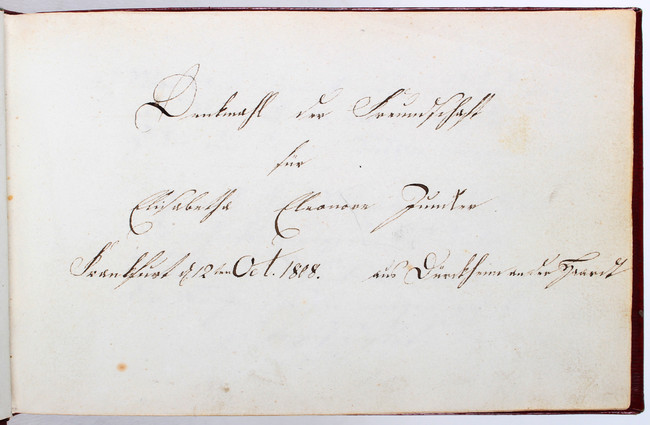 Denkmahl der Freundschaft
für
Elisabetha Eleonore Juncker
Frankfurt d 12ten Oct. 1808. aus Dürckheim an der Haardt